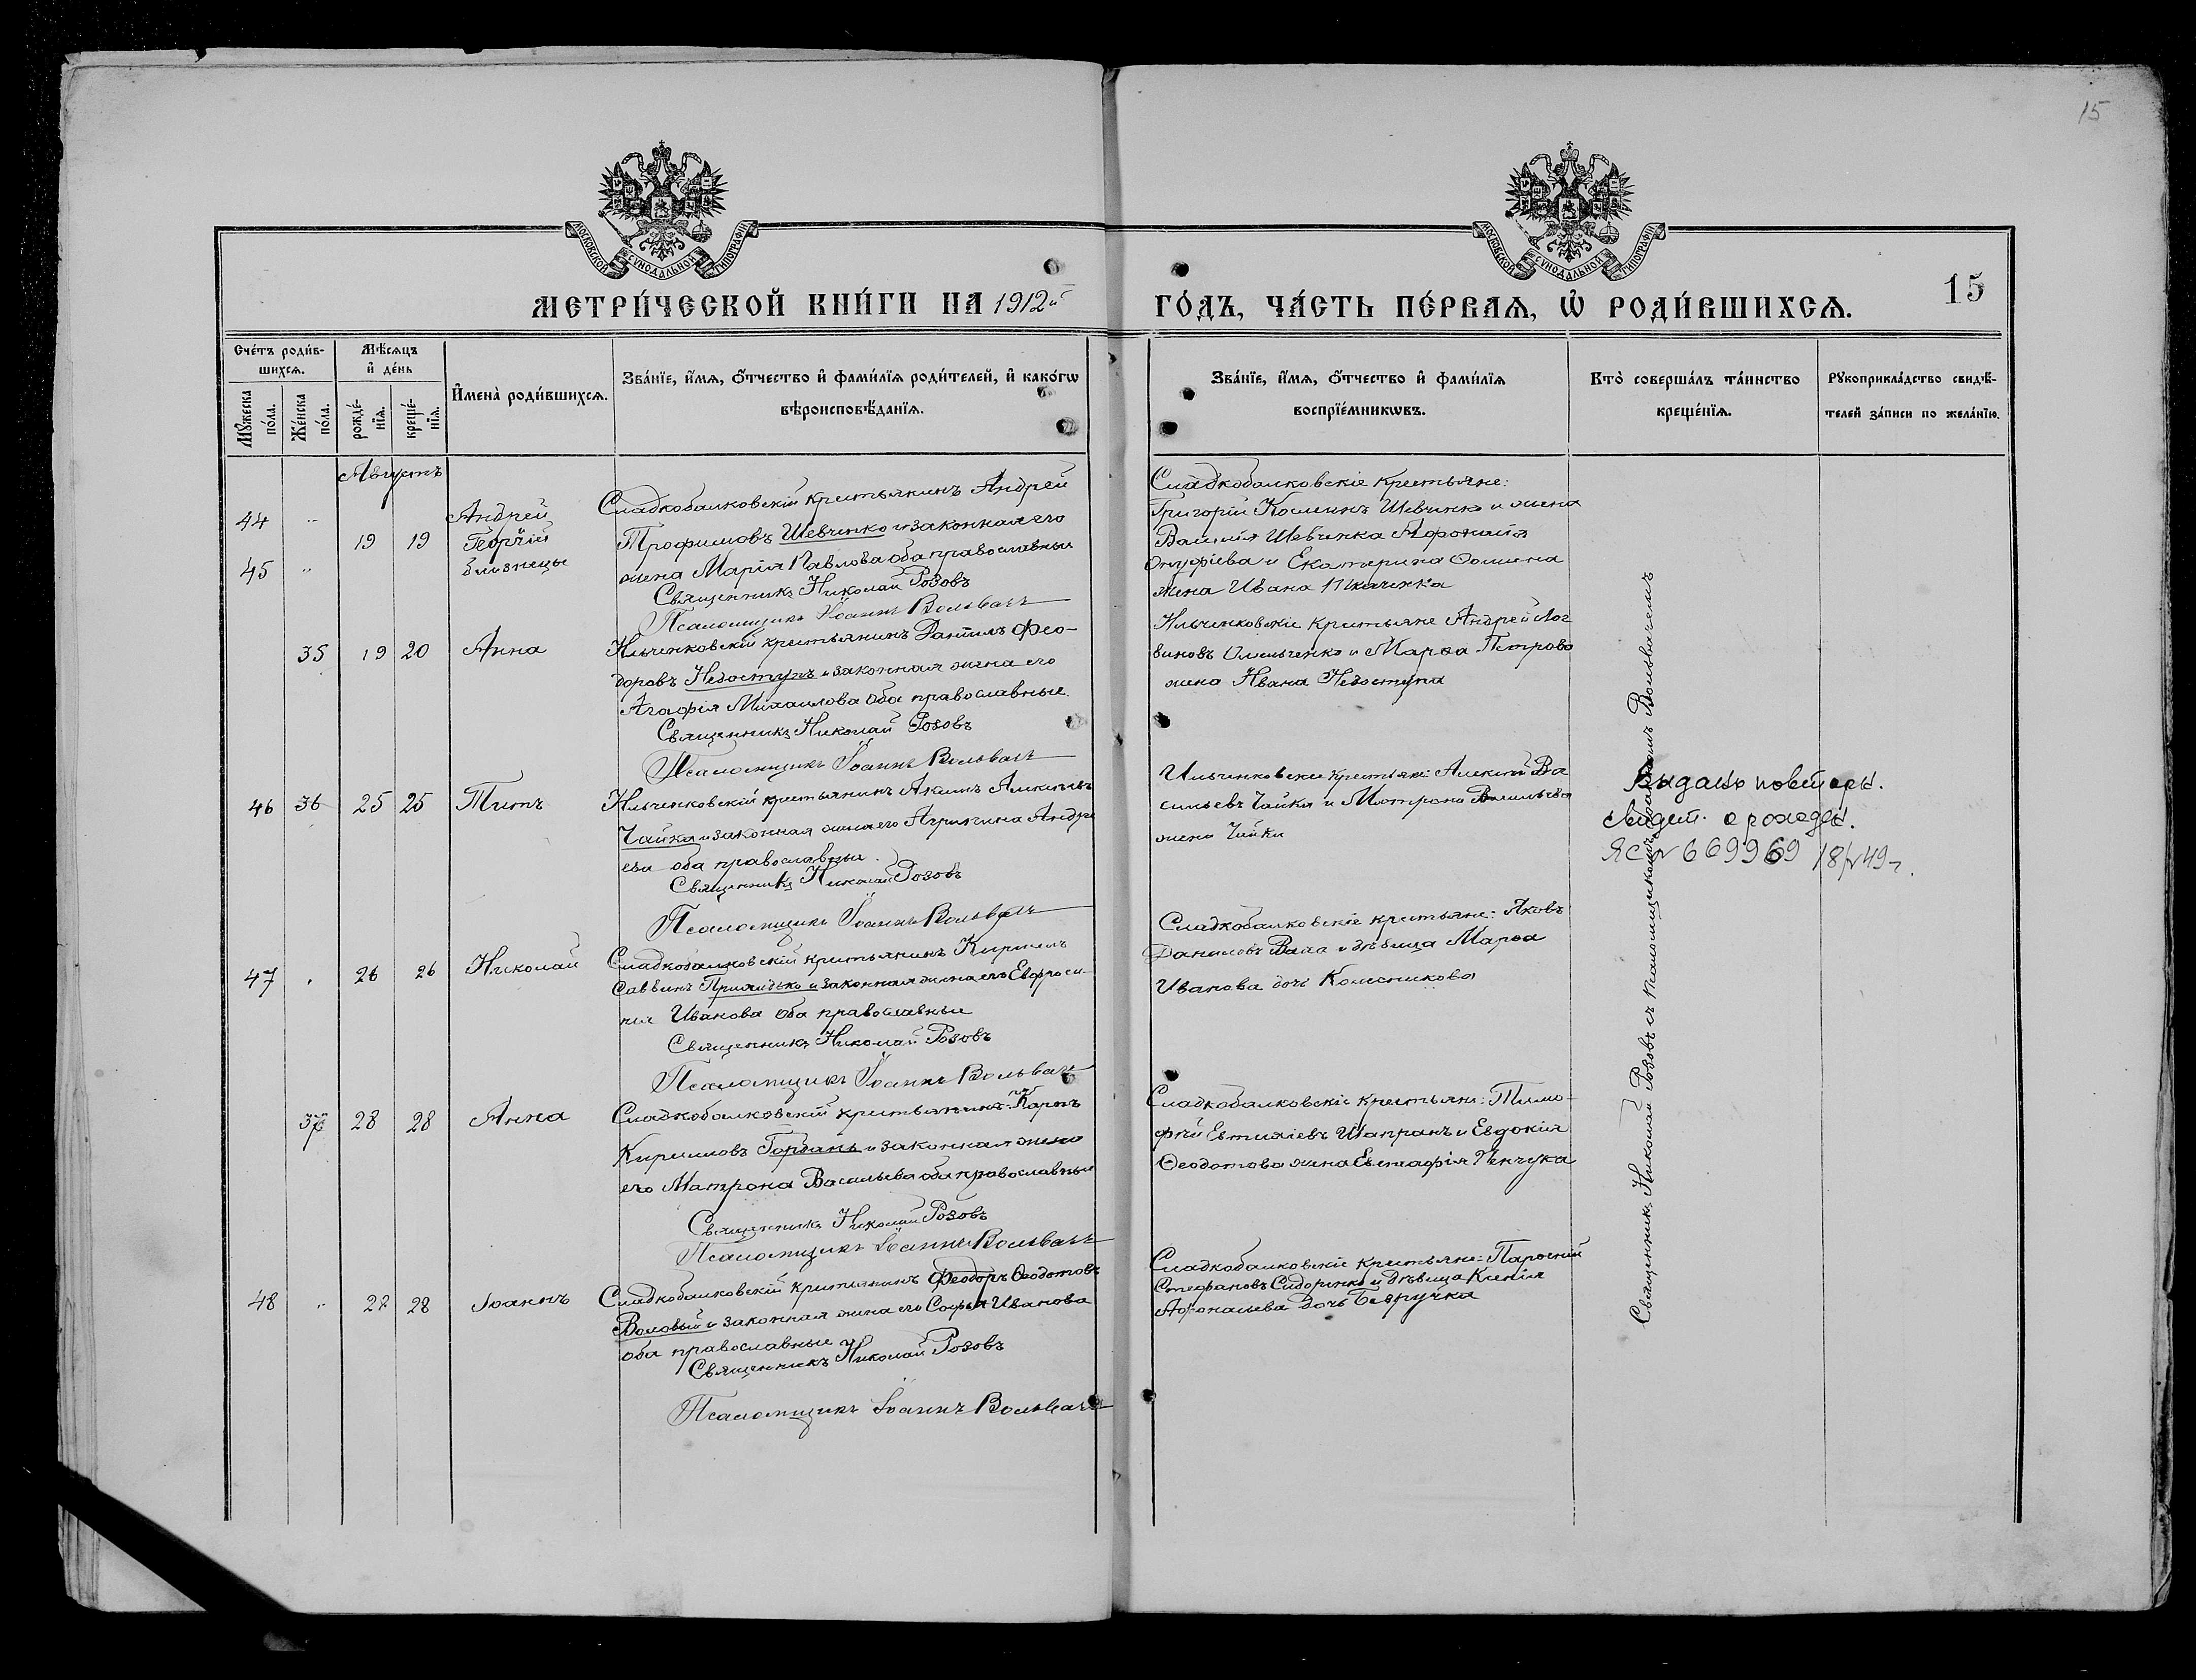 15
МОСКОВСКОЙ СѴНОДАЛЬНОЙ ТИПОГРАФІИ
МОСКОВСКОЙ СѴНОДАЛЬНОЙ ТИПОГРАФІИ
МЕТРИ́ЧЕСКОЙ КНИ́ГИ НА 1912й
ГО́ДЪ, ЧА́СТЬ ПЕ́РВАѦ, Ѡ҆ РОДИ́ВШИХСѦ.
15
Сче́тъ роди́в-
шихсѧ.
Мꙋ́жеска по́ла.
Же́нска по́ла.
Мѣ́сѧцъ
и҆ де́нь
рожде́-
нїѧ.
креще́-
нїѧ.
И҆мена̀ роди́вшихсѧ.
Зва́нїе, и҆́мѧ, ѻ҆́тчество и҆ фами́лїѧ роди́телей, и҆ како́гѡ
вѣроисповѣ́данїѧ.
Зва́нїе, и҆́мѧ, ѻ҆́тчество и҆ фами́лїѧ
воспрїе́мникѡвъ.
Кто̀ соверша́лъ та́инство
креще́нїѧ.
Рꙋкоприкла́дство свидѣ́-
телей за́писи по жела́нїю.
Августъ
44 "
45 "
19 19
Андрей
Георгій
близнецы
Сладкобалковскій крестьянинъ Андрей
Трофимовъ Шевченко и законная его
жена Марія Павлова оба православные
Священникъ Николай Розовъ
Псаломщикъ Іоаннъ Вольвачъ
Сладкобалковскіе крестьяне:
Григорій Косминъ Шевченко и жена
Василія Шевченка Афонасія
Онуфріева и Екатерина Фомина
жена Ивана Ткаченка
35 19 20 Анна
Ильченковскій крестьянинъ Даніилъ Фео-
доровъ Недоступъ и законная жена его
Агафія Михаилова оба православные.
Священникъ Николай Розовъ
Псаломщикъ Іоаннъ Вольвачъ
Ильченковскіе крестьяне Андрей Лог
виновъ Омельченко и Марѳа Петрова
жена Ивана Недоступа
46 36 25 25 Титъ
Ильченковскій крестьянинъ Акимъ Алексѣевъ
Чайка и законная жена его Агрипина Андре
ева оба православные.
Священникъ Николай Розовъ
Псаломщикъ Іоаннъ Вольвачъ
Ильченковскіе крестьяне: Алексій Ва
сильевъ Чайка и Матрона Васильева
жена Чайки
Видано повторн.
Свидет. о рожден.
ЯС № 669969 18/V 49 г.
47 " 26 26 Николай
Сладкобалковскій крестьянинъ Кириллъ
Саввинъ Приходько и законная жена его Евфроси-
нія Иванова оба православные
Священникъ Николай Розовъ
Псаломщикъ Іоаннъ Вольвачъ
Сладкобалковскіе крестьяне: Яковъ
Даниловъ Вала и дѣвица Марѳа
Иванова дочь Колесникова
37 28 28 Анна
Сладкобалковскій крестьянинъ: Карпъ
Кирилловъ Горбань и законная жена
его Матрона Васильева оба православные
Священникъ Николай Розовъ
Псаломщикъ Іоаннъ Вольвачъ
Сладкобалковскіе крестьяне: Тимо-
фей Евтихіевъ Шапранъ и Евдокія
Ѳеодотова жена Евстафія Пенчука
48 " 27 28 Іоаннъ
Сладкобалковскій крестьянинъ Феодоръ Ѳеодотовъ
Воловый и законная жена его Софья Иванова
оба православные
Священникъ Николай Розовъ
Псаломщикъ Іоаннъ Вольвачъ
Сладкобалковскіе крестьяне: Парѳеній
Стефановъ Сидоренко и дѣвица Ксенія
Афонасьева дочь Безручка
Священникъ Николай Розовъ съ псаломщикомъ Іоанномъ Вольвачемъ